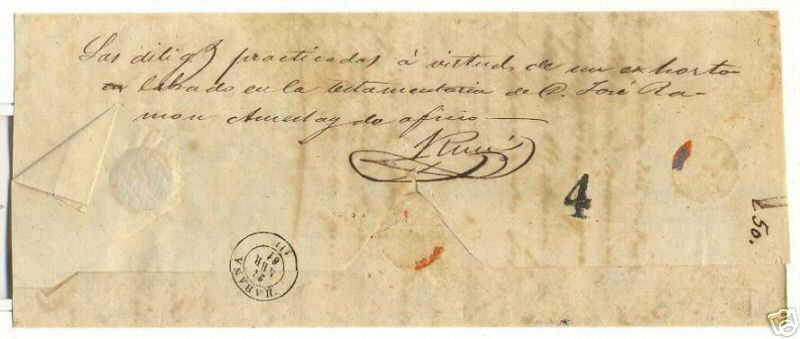 Las diligs practicadas á virtud de un exhorto
librado en la testamentaria de D. José Ra-
mon y de oficio
4
L 50.
HABANA
ABR
61